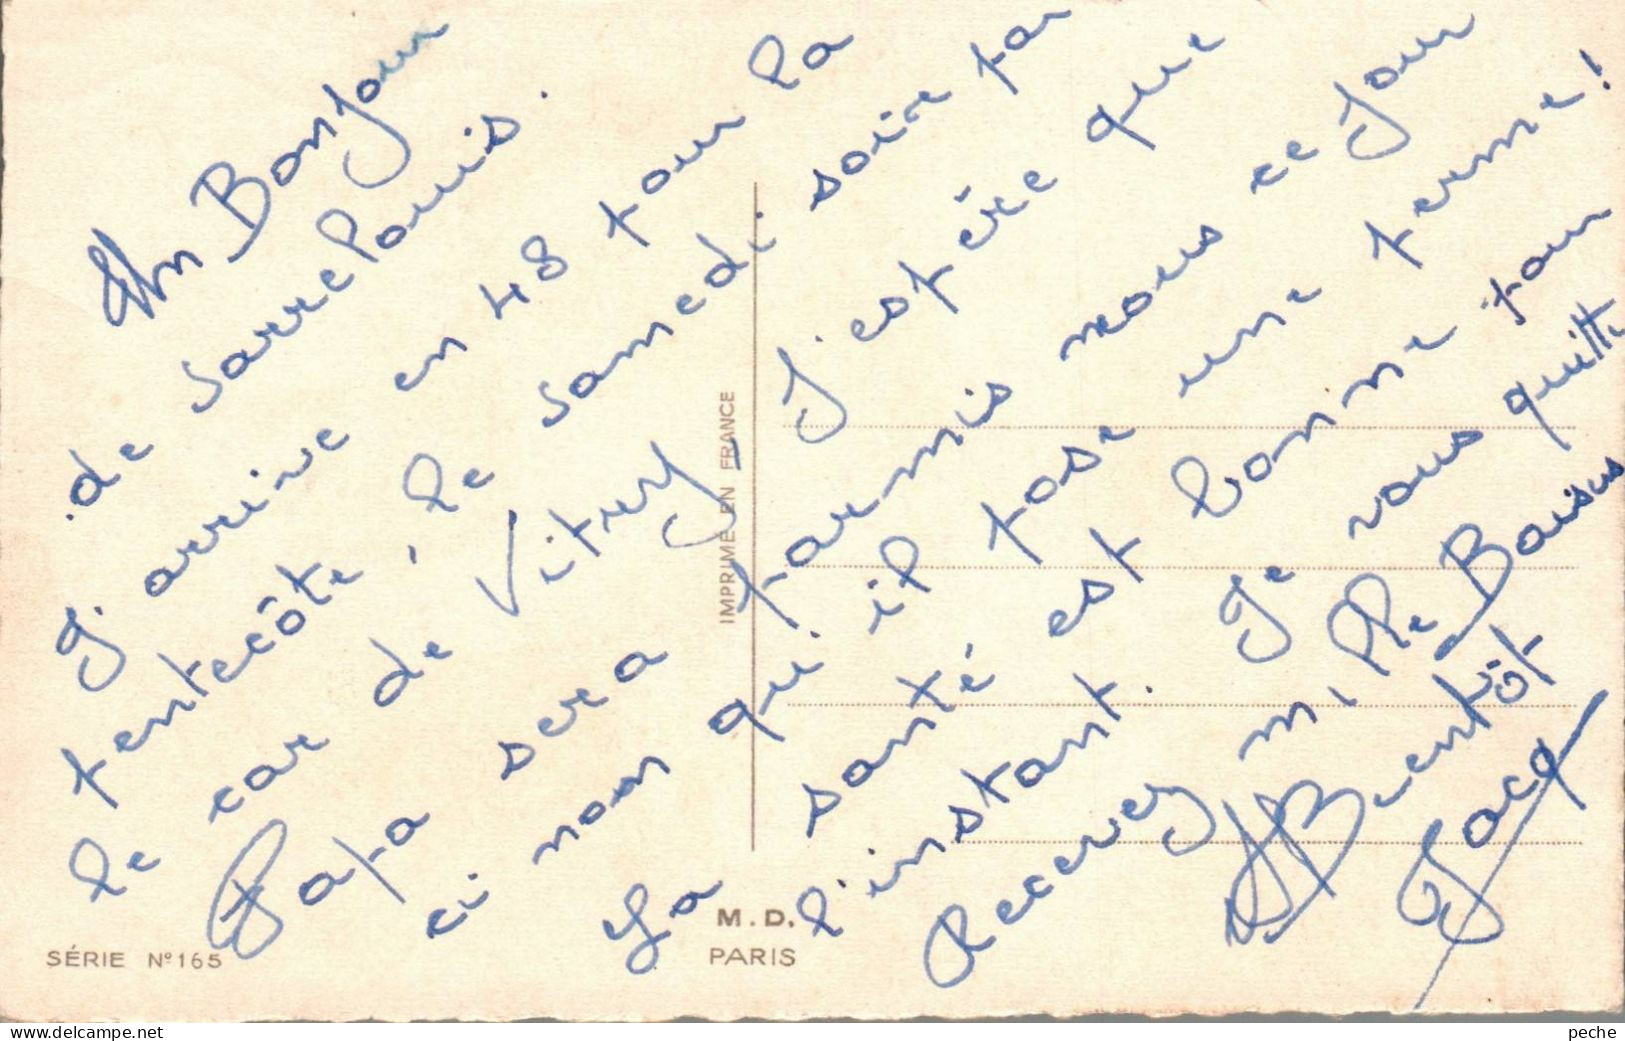 Un Bonjour
de Sarrelouis.
J'arrive en 48 pour la
pentecôte, le samedi soir par
le car de Vitry J'espère que
Papa sera parmis nous ce Jour
ci non qu'il pose une perme!
La santé est bonne pour
l'instant. Je vous quitte
Recevez mille Baisers
A Bientôt
Jacq
IMPRIMÉ EN FRANCE
M.D.
PARIS
SÉRIE Nº 165
www.delcampe.net
peche